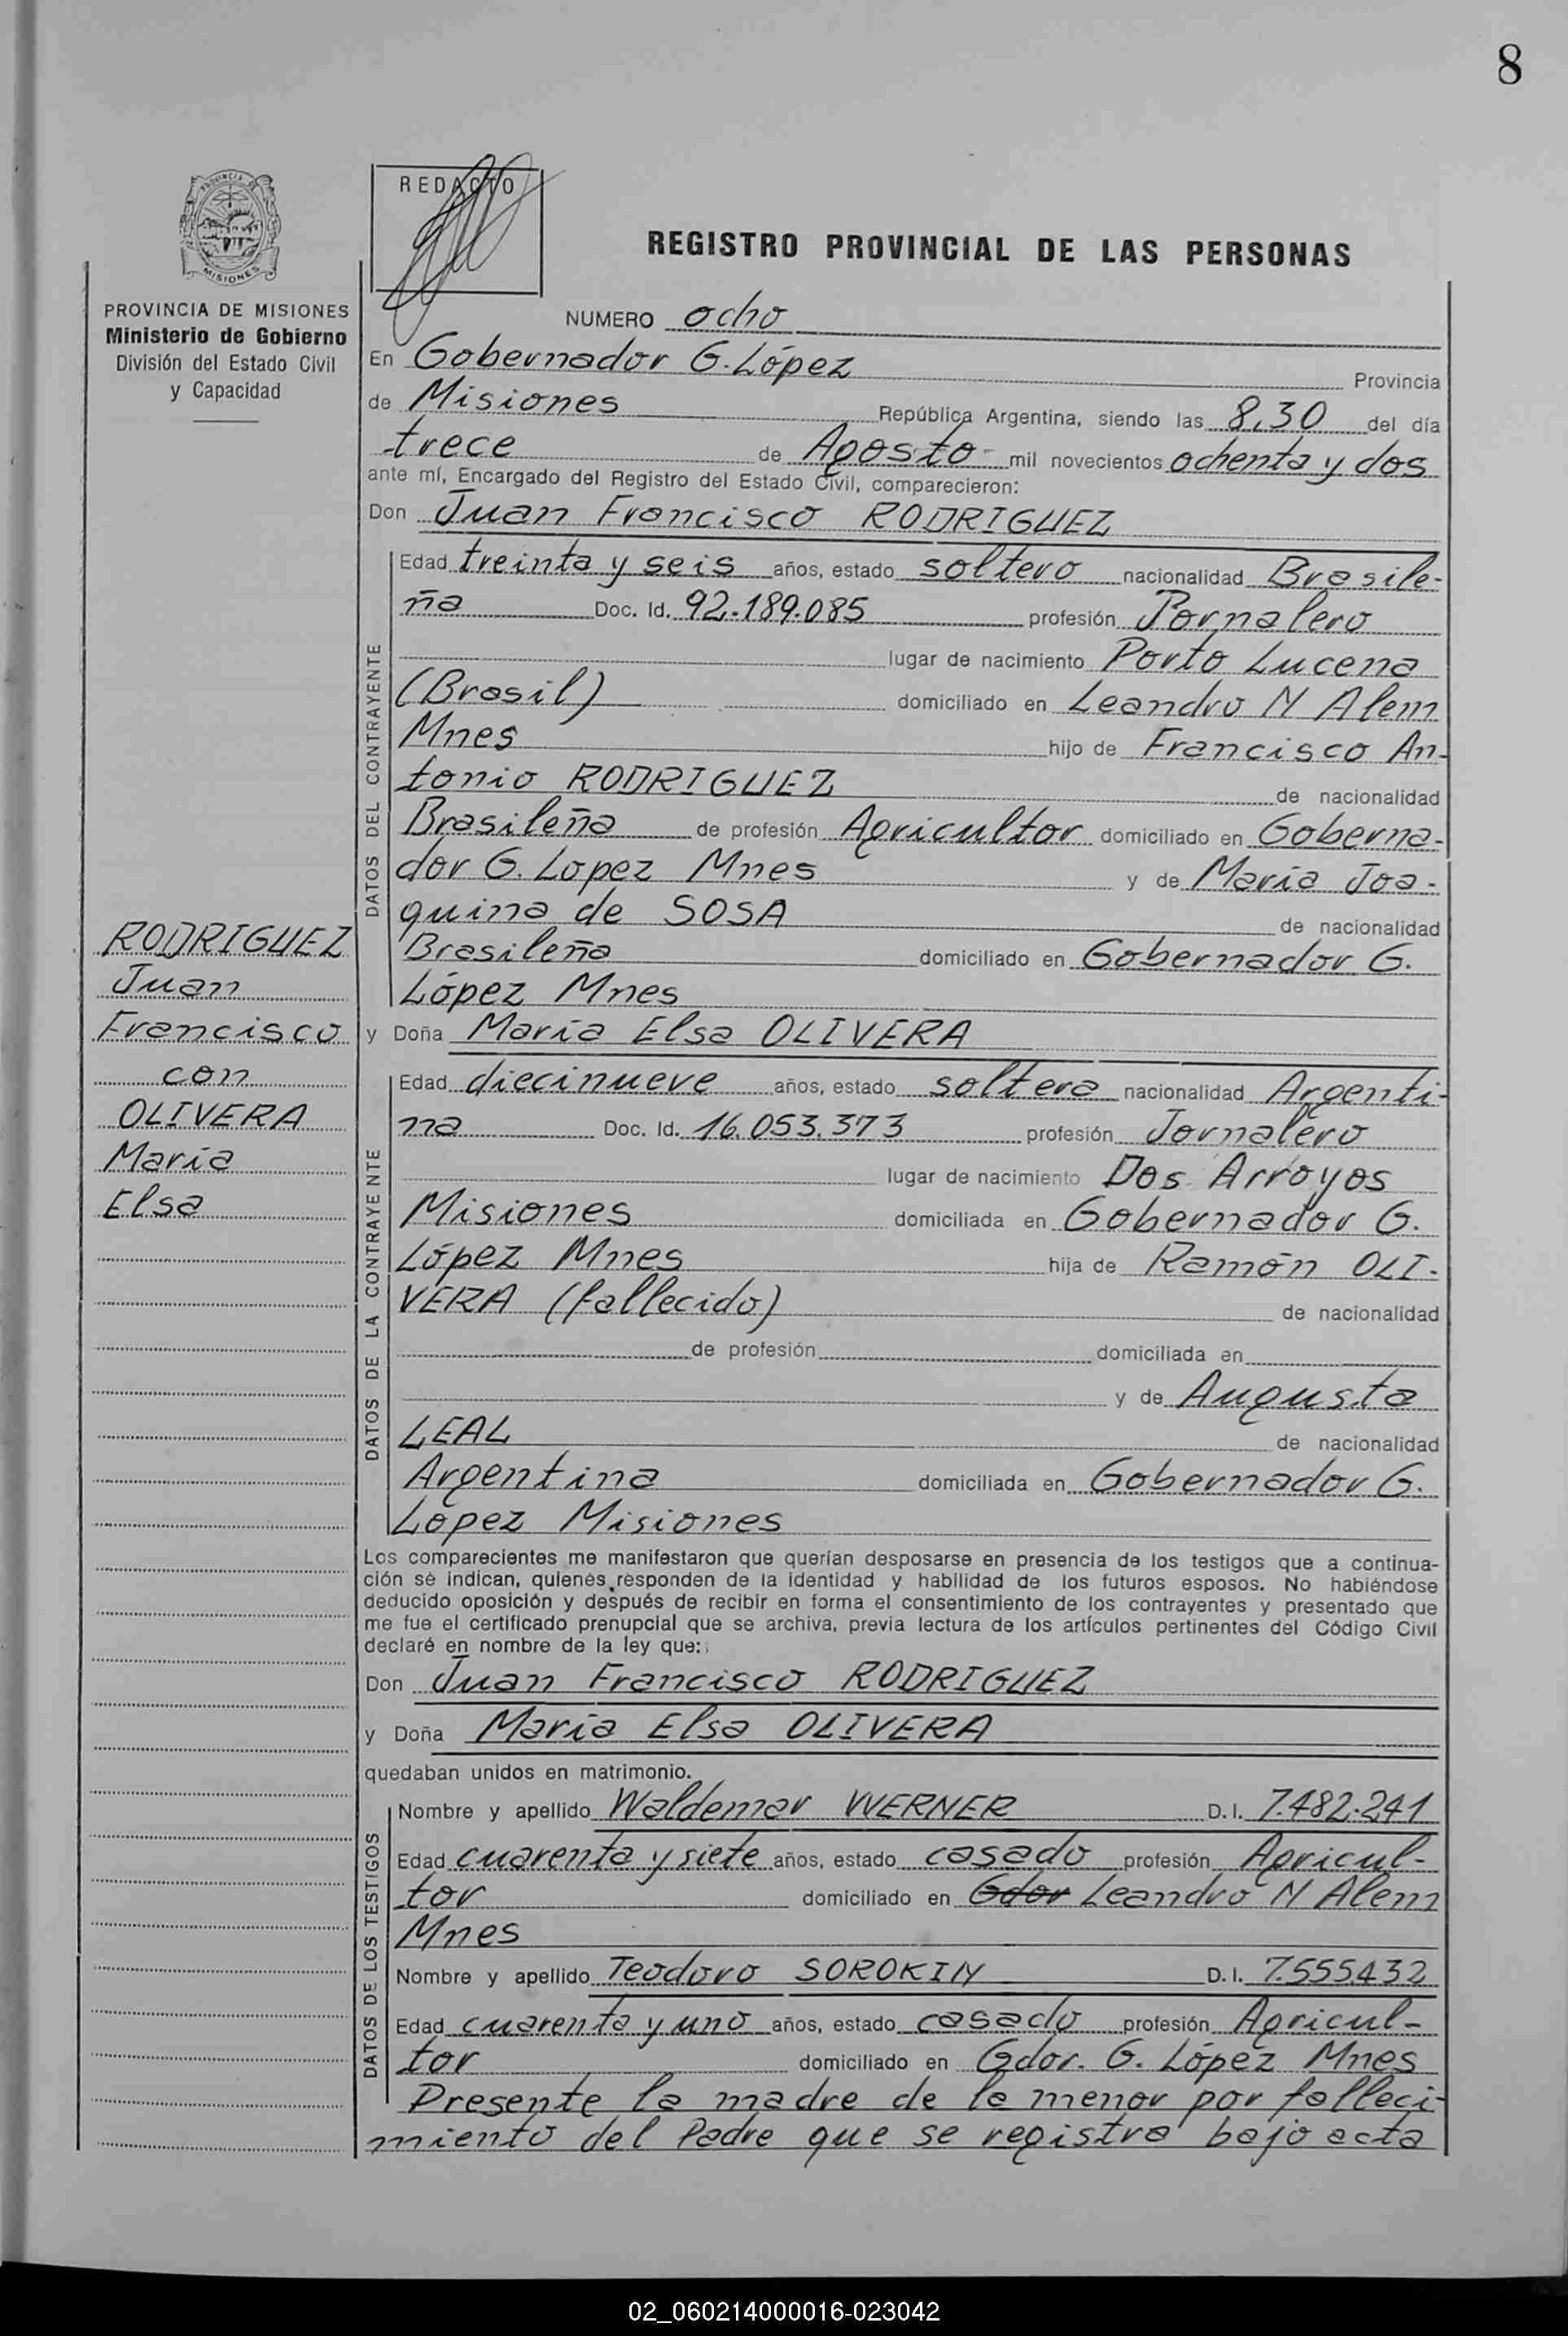 8
PROVINCIA DE
MISIONES
REDACTO
REGISTRO PROVINCIAL DE LAS PERSONAS
PROVINCIA DE MISIONES
Ministerio de Gobierno
División del Estado Civil
y Capacidad
NUMERO ocho
En Gobernador G. López Provincia
de Misiones República Argentina, siendo las 8,30 del día
trece de Agosto mil novecientos ochenta y dos
ante mí, Encargado del Registro del Estado Civil, comparecieron:
Don Juan Francisco RODRIGUEZ
DATOS DEL CONTRAYENTE
Edad treinta y seis años, estado soltero nacionalidad Brasile-
ña Doc. Id. 92.189.085 profesión Jornalero
lugar de nacimiento Porto Lucena
(Brasil) domiciliado en Leandro N Alem
Mnes hijo de Francisco An-
tonio RODRIGUEZ de nacionalidad
Brasileña de profesión Agricultor domiciliado en Goberna-
dor G. Lopez Mnes y de Maria Joa-
quina de SOSA de nacionalidad
Brasileña domiciliado en Gobernador G.
López Mnes
RODRIGUEZ
Juan
Francisco
con
OLIVERA
María
Elsa
y Doña María Elsa OLIVERA
DATOS DE LA CONTRAYENTE
Edad diecinueve años, estado soltera nacionalidad Argenti-
na Doc. Id. 16.053.373 profesión Jornalero
lugar de nacimiento Dos Arroyos
Misiones domiciliada en Gobernador G.
López Mnes hija de Ramón OLI-
VERA (fallecido) de nacionalidad
de profesión domiciliada en
y de Augusta
LEAL de nacionalidad
Argentina domiciliada en Gobernador G.
Lopez Misiones
Los comparecientes me manifestaron que querían desposarse en presencia de los testigos que a continua-
ción se indican, quienes responden de la identidad y habilidad de los futuros esposos. No habiéndose
deducido oposición y después de recibir en forma el consentimiento de los contrayentes y presentado que
me fue el certificado prenupcial que se archiva, previa lectura de los artículos pertinentes del Código Civil
declaré en nombre de la ley que:
Don Juan Francisco RODRIGUEZ
y Doña María Elsa OLIVERA
quedaban unidos en matrimonio.
DATOS DE LOS TESTIGOS
Nombre y apellido Waldemar WERNER D.I. 7.482.241
Edad cuarenta y siete años, estado casado profesión Agricul-
tor domiciliado en Gdor Leandro N Alem
Mnes
Nombre y apellido Teodoro SOROKIN D.I. 7.555.432
Edad cuarenta y uno años, estado casado profesión Agricul-
tor domiciliado en Gdor. G. López Mnes
Presente la madre de la menor por falleci-
miento del Padre que se registra bajo acta
02_060214000016-023042